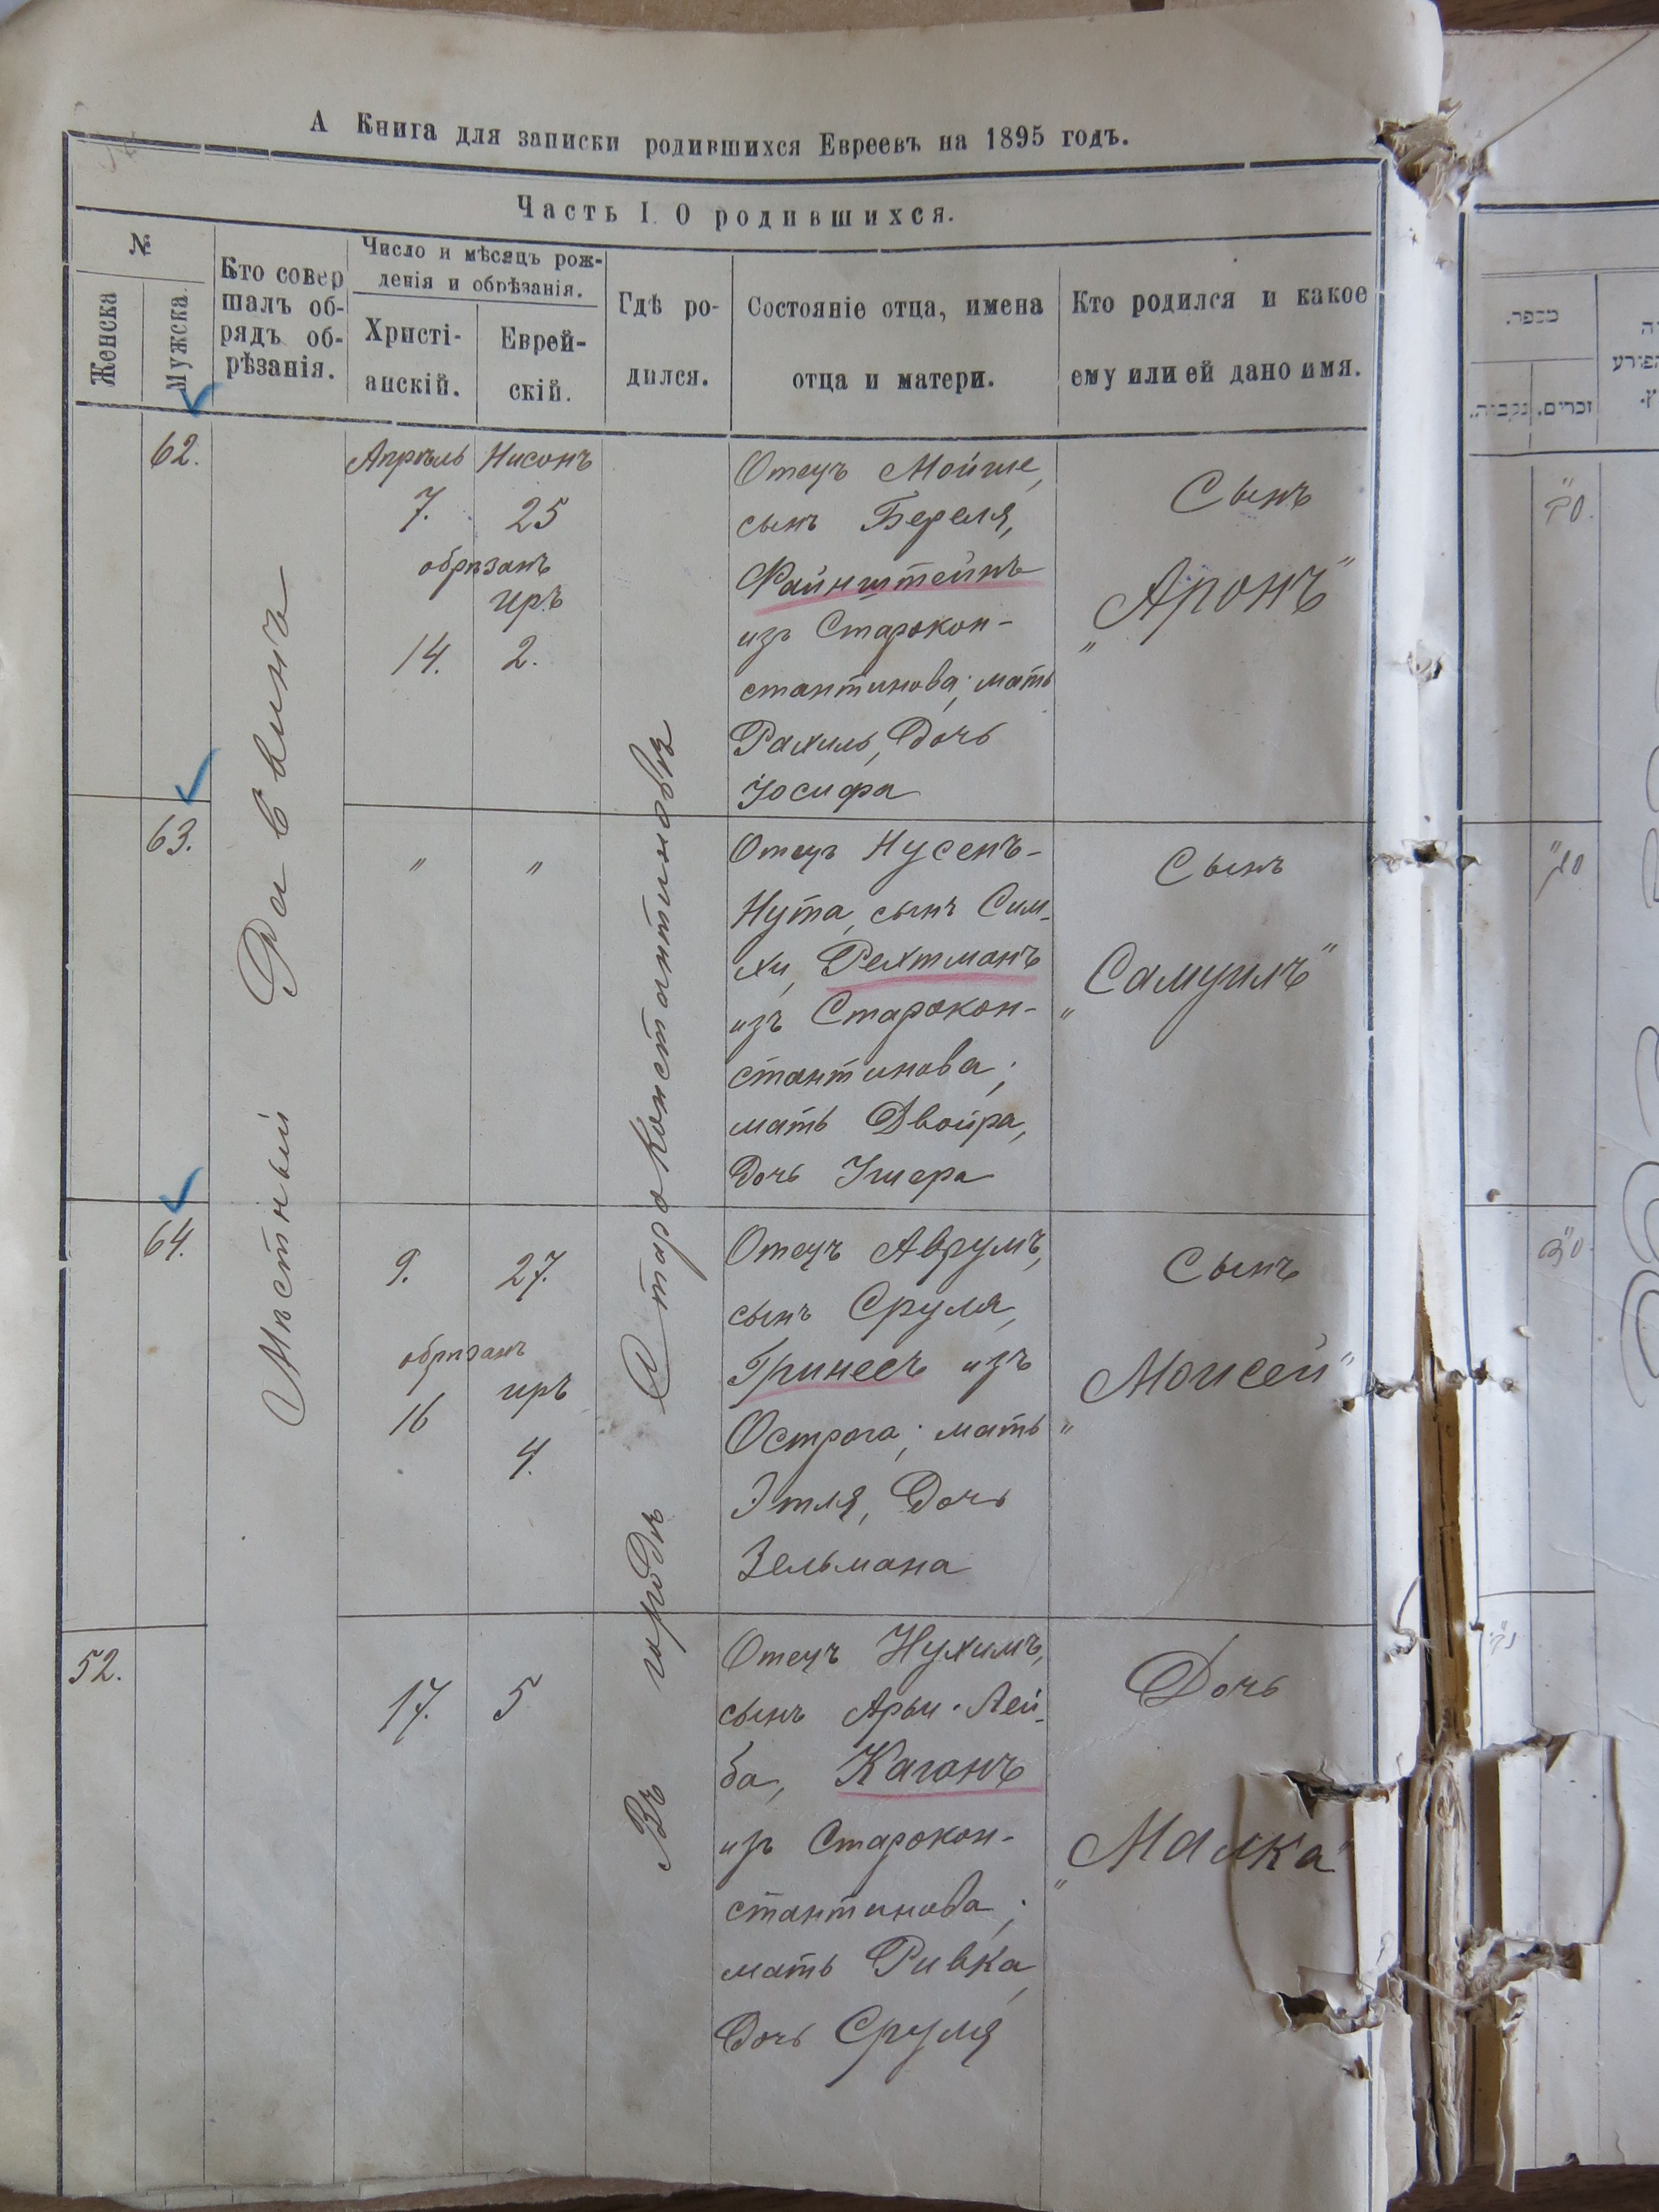 А Книга для записки родившихся Евреевъ на 1895 годъ.
Часть I О родившихся.
№
Женска
Мужска
Кто совер
шалъ об-
рядъ об-
рѣзанія.
Число и мѣсяцъ рож-
денія и обрѣзанія.
Христі-
анскій.
Еврей-
скій.
Гдѣ ро-
дился.
Состояніе отца, имена
отца и матери.
Кто родился и какое
ему или ей дано имя.
Мѣстный Раввинъ
Въ городѣ Староконстантиновѣ
62.
Апрѣль Нисонъ
7. 25
обрѣзанъ
иръ
14. 2.
Отецъ Мойше,
сынъ Береля,
Файнштейнъ
изъ Старокон-
стантинова; мать
Рахиль, дочь
Іосифа
Сынъ
„Аронъ"
63.
" "
Отецъ Нусенъ-
Нута, сынъ Сим-
хи, Рехтманъ
изъ Старокон-
стантинова;
мать Двойра,
дочь Ушера
Сынъ
„Самуилъ"
64.
9. 27.
обрѣзанъ
иръ
16
4.
Отецъ Аврумъ,
сынъ Сруля,
Гринесъ изъ
Острога; мать
Этля, дочь
Зельмана
Сынъ
„Моисей"
52.
17. 5
Отецъ Нухимъ,
сынъ Арьи-Лей-
ба, Каганъ
изъ Старокон-
стантинова;
мать Ривка,
дочь Сруля
Дочь
„Малка"
מספר.
זכרים.
נקבות.